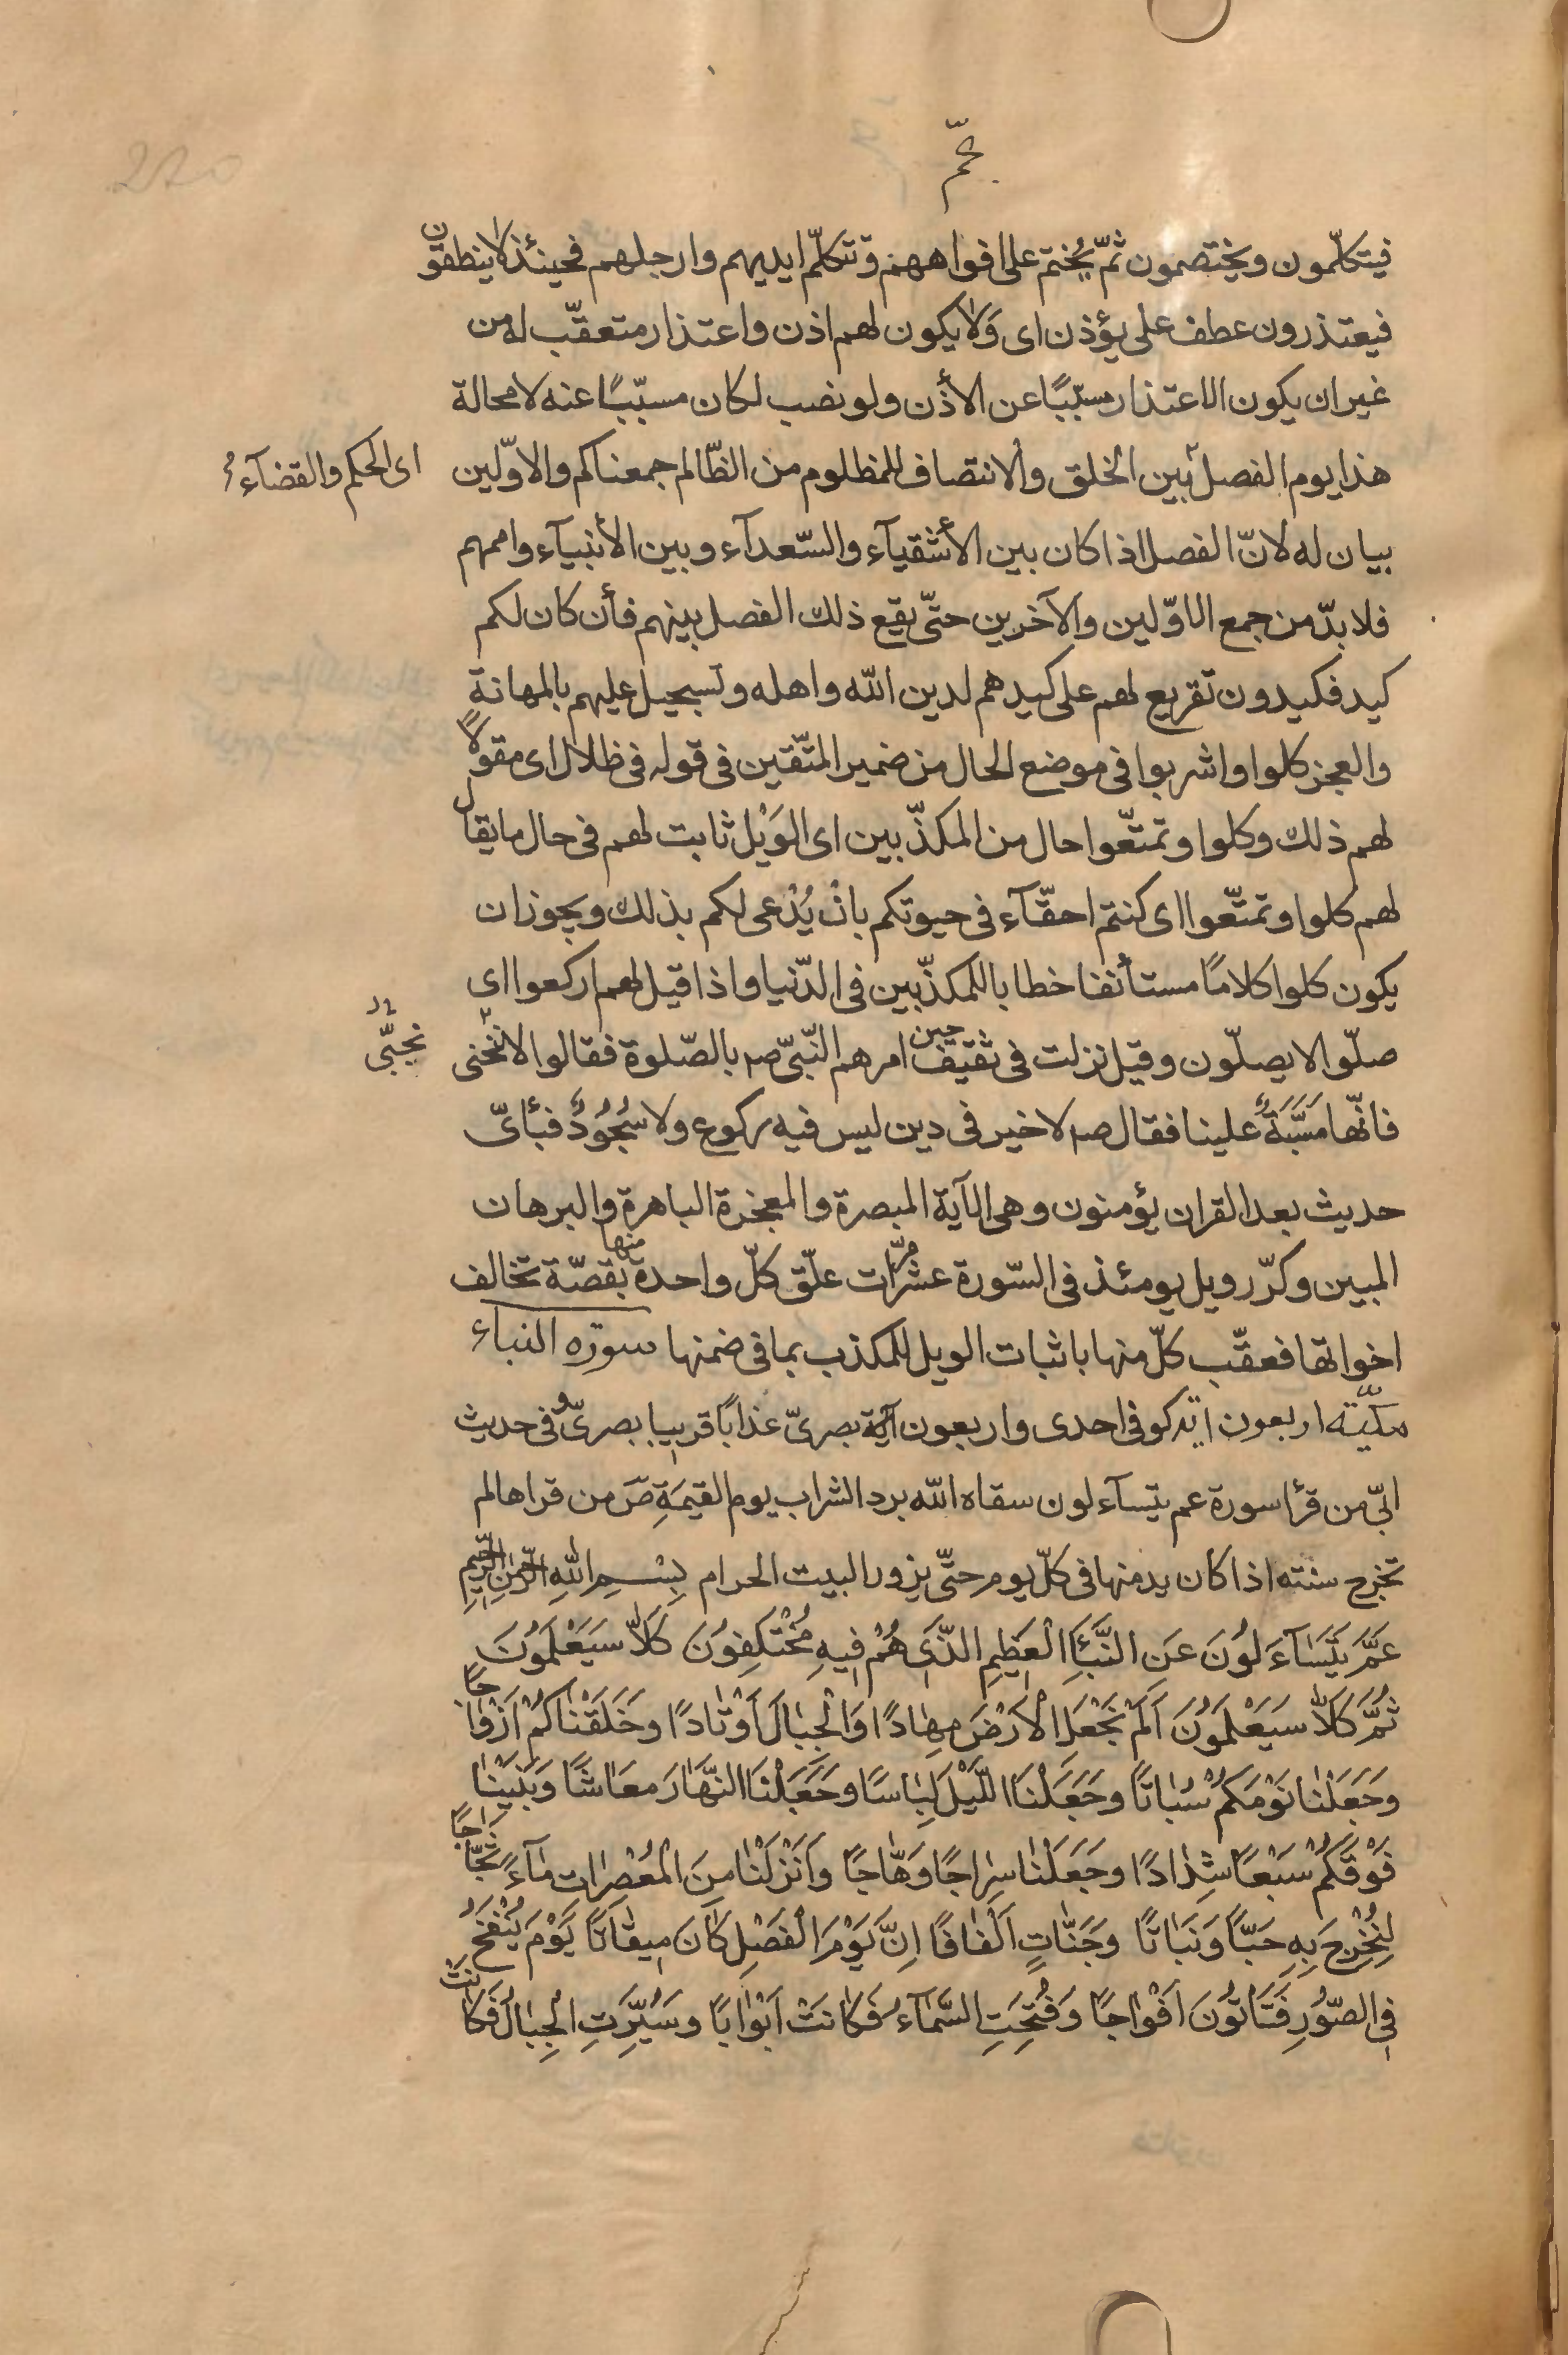 عمّ
فيتكلّمون ويختصمون ثمّ يُختم على افواههم وتتكلّم ايديهم وارجلهم فحينئذ لا ينطقون
فيعتذرون عطف على يؤذن اى وَلا يكون لهم اذن واعتذار متعقّب له من
غير ان يكون الاعتذار مسبّبًا عن الأذن ولو نصب لكان مسبّبًا عنه لا محالة
هذا يوم الفصل بين الخلق والانتصاف للمظلوم من الظّالم جمعناكم والاوّلين
اى الحكم والقضآء
بيان له لانّ الفصل اذا كان بين الأشقيآء والسّعدآء وبين الأنبيآء واممهم
فلا بدّ من جمع الاوّلين والآخرين حتّى يقع ذلك الفصل بينهم فأن كان لكم
كيد فكيدون تقريع لهم على كيدهم لدين الله واهله وتسجيل عليهم بالمهانة
والعجز كلوا واشربوا فى موضع الحال من ضمير المتّقين فى قوله فى ظلال اى مقولًا
لهم ذلك وكلوا وتمتّعوا حال من المكذّبين اى الوَيْل ثابت لهم فى حال ما يقال
لهم كلوا وتمتّعوا اى كنتم احقّآء فى حيوتكم بانْ يُدْعى لكم بذلك ويجوز ان
يكون كلوا كلامًا مستأنفا خطابا للمكذّبين فى الدّنيا واذا قيل لهم اركعوا اى
صلّوا لا يصلّون وقيل نزلت فى ثقيف حين امرهم النّبىّ صه بالصّلوة فقالوا لا ننحنى
نجبّى
فانّها مَسَبَّةٌ علينا فقال صه لا خير فى دين ليس فيه ركوع ولا سُجُودٌ فبأىّ
حديث بعد القران يؤمنون وهى الآية المبصرة والمعجزة الباهرة والبرهان
المبين وكرّر ويل يومئذ فى السّورة عشر مرّات علّق كلّ واحدة منها بقصّة تخالف
اخواتها فعقّب كلّ منها باثبات الويل للمكذب بما فى ضمنها سورة النباء
مكيّته اربعون ايه كوفى احدى واربعون آية بصرىّ عذابًا قريبا بصرىّ وفى حديث
ابىّ من قرأ سورة عم يتسآءلون سقاه الله برد الشراب يوم القيمَةِ صَ من قراها لم
تخرج سنته اذا كان يدمنها فى كلّ يوم حتّى يزور البيت الحرام بِسْمِ اللهِ الرَّحْمٰنِ الرَّحِيمِ
عَمَّ يَتَسَآءَلُونَ عَنِ النَّبَأِ الْعَظِيمِ الَّذِى هُمْ فِيهِ مُخْتَلِفُونَ كَلَّا سَيَعْلَمُونَ
ثُمَّ كَلَّا سَيَعْلَمُونَ اَلَمْ نَجْعَلِ الْاَرْضَ مِهَادًا وَالْجِبَالَ اَوْتَادًا وَخَلَقْنَاكُمْ اَزْوَاجًا
وَجَعَلْنَا نَوْمَكُمْ سُبَاتًا وَجَعَلْنَا اللَّيْلَ لِبَاسًا وَجَعَلْنَا النَّهَارَ مَعَاشًا وَبَنَيْنَا
فَوْقَكُمْ سَبْعًا شِدَادًا وَجَعَلْنَا سِرَاجًا وَهَّاجًا وَاَنْزَلْنَا مِنَ الْمُعْصِرَاتِ مَآءً ثَجَّاجًا
لِنُخْرِجَ بِهِ حَبًّا وَنَبَاتًا وَجَنَّاتٍ اَلْفَافًا اِنَّ يَوْمَ الْفَصْلِ كَانَ مِيقَاتًا يَوْمَ يُنْفَخُ
فِى الصُّورِ فَتَأْتُونَ اَفْوَاجًا وَفُتِحَتِ السَّمَآءُ فَكَانَتْ اَبْوَابًا وَسُيِّرَتِ الْجِبَالُ فَكَانَتْ